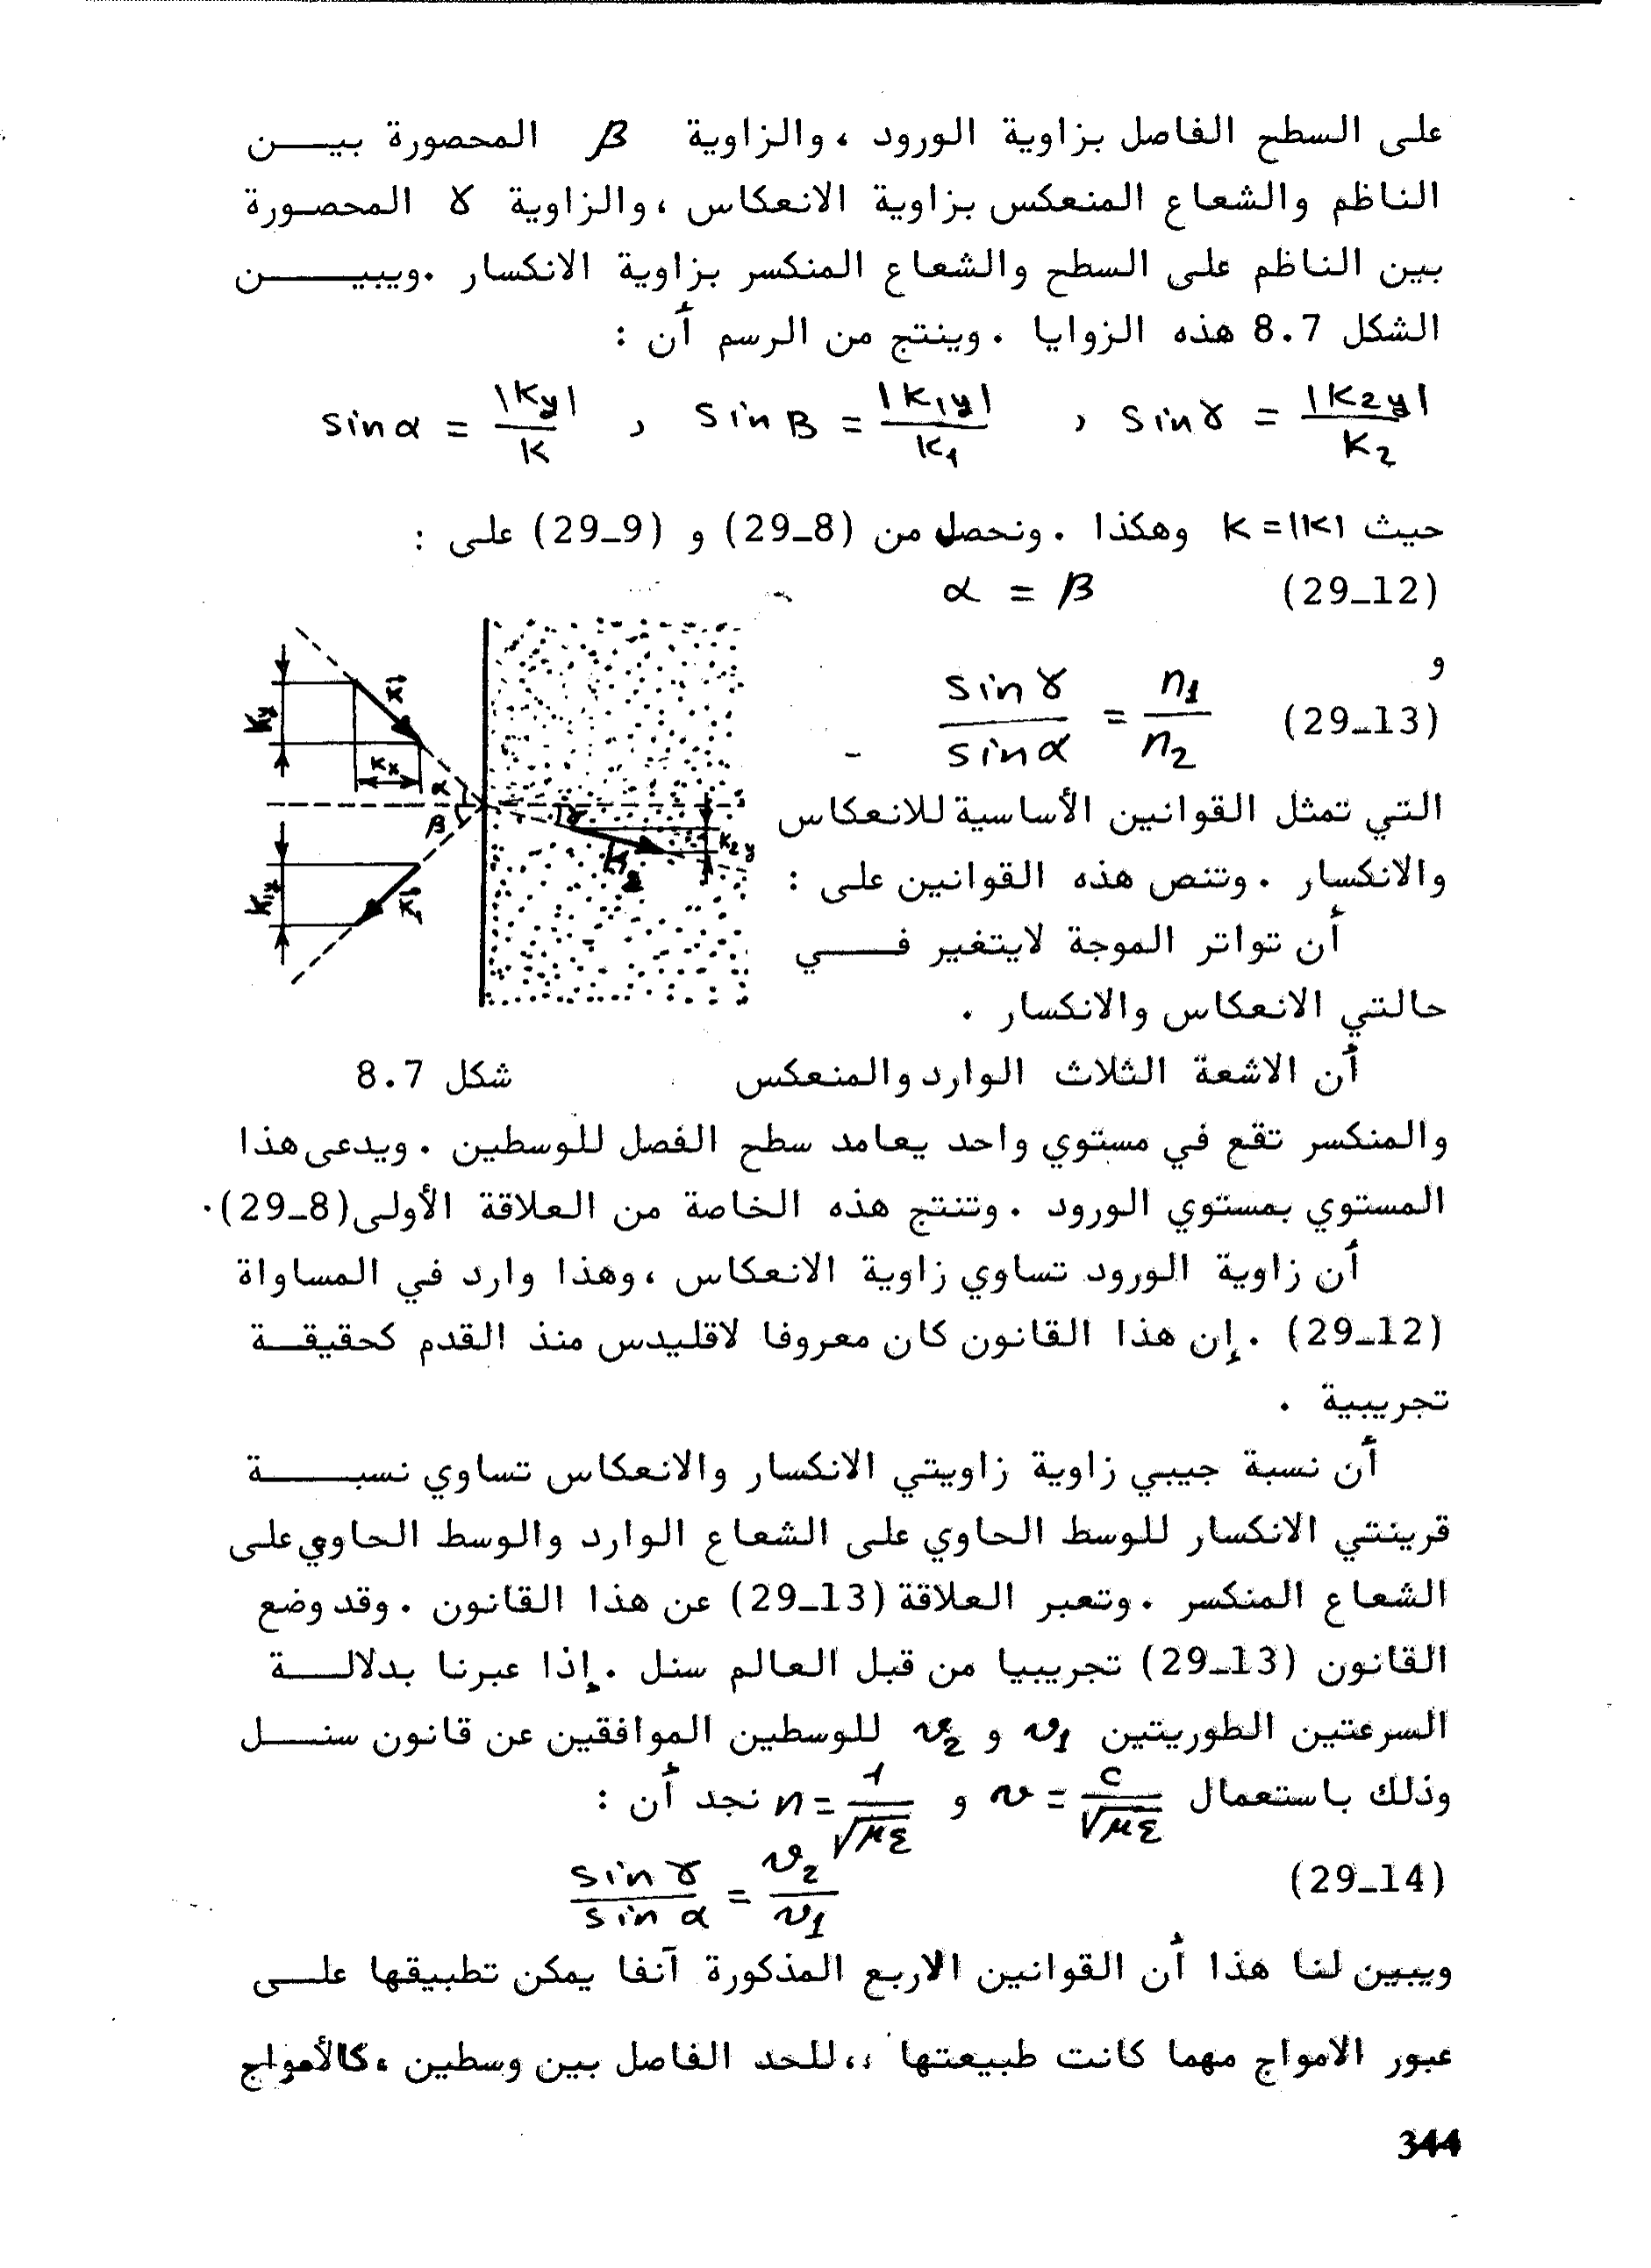 على السطح الفاصل بزاوية الورود ، والزاوية β المحصورة بيـــن
الناظم والشعاع المنعكس بزاوية الانعكاس ، والزاوية ४ المحصـورة
بين الناظم على السطح والشعاع المنكسر بزاوية الانكسار . ويبيـــــن
الشكل 8.7 هذه الزوايا . وينتج من الرسم أن :
sin α = |Ky| / K , sin β = |K1y| / K1 , sin γ = |K2y| / K2
حيث K = |K| وهكذا . ونحصل من (8_29) و (9_29) على :
(29_12) α = β
و
(29_13) sin γ / sin α = n1 / n2
التي تمثل القوانين الأساسية للانعكاس
والانكسار . وتنص هذه القوانين على :
أن تواتر الموجة لايتغير فـــــي
حالتي الانعكاس والانكسار .
Ky
K
Kx
α
β
γ
K2y
K2
K1y
K1
أن الاشعة الثلاث الوارد والمنعكس
شكل 8.7
والمنكسر تقع في مستوي واحد يعامد سطح الفصل للوسطين . ويدعى هذا
المستوي بمستوي الورود . وتنتج هذه الخاصة من العلاقة الأولى (8_29) .
أن زاوية الورود تساوي زاوية الانعكاس ، وهذا وارد في المساواة
(29_12) . إن هذا القانون كان معروفا لاقليدس منذ القدم كحقيقـــة
تجريبية .
أن نسبة جيبي زاوية زاويتي الانكسار والانعكاس تساوي نسبـــــة
قرينتي الانكسار للوسط الحاوي على الشعاع الوارد والوسط الحاوي على
الشعاع المنكسر . وتعبر العلاقة (13_29) عن هذا القانون . وقد وضع
القانون (13_29) تجريبيا من قبل العالم سنل . إذا عبرنا بدلالـــة
السرعتين الطوريتين v1 و v2 للوسطين الموافقين عن قانون سنـــل
وذلك باستعمال v = c / √με و n = 1 / √με نجد أن :
(29_14) sin γ / sin α = v2 / v1
ويبين لنا هذا أن القوانين الاربع المذكورة آنفا يمكن تطبيقها علــى
عبور الامواج مهما كانت طبيعتها ،، للحد الفاصل بين وسطين ، كالأمواج
344